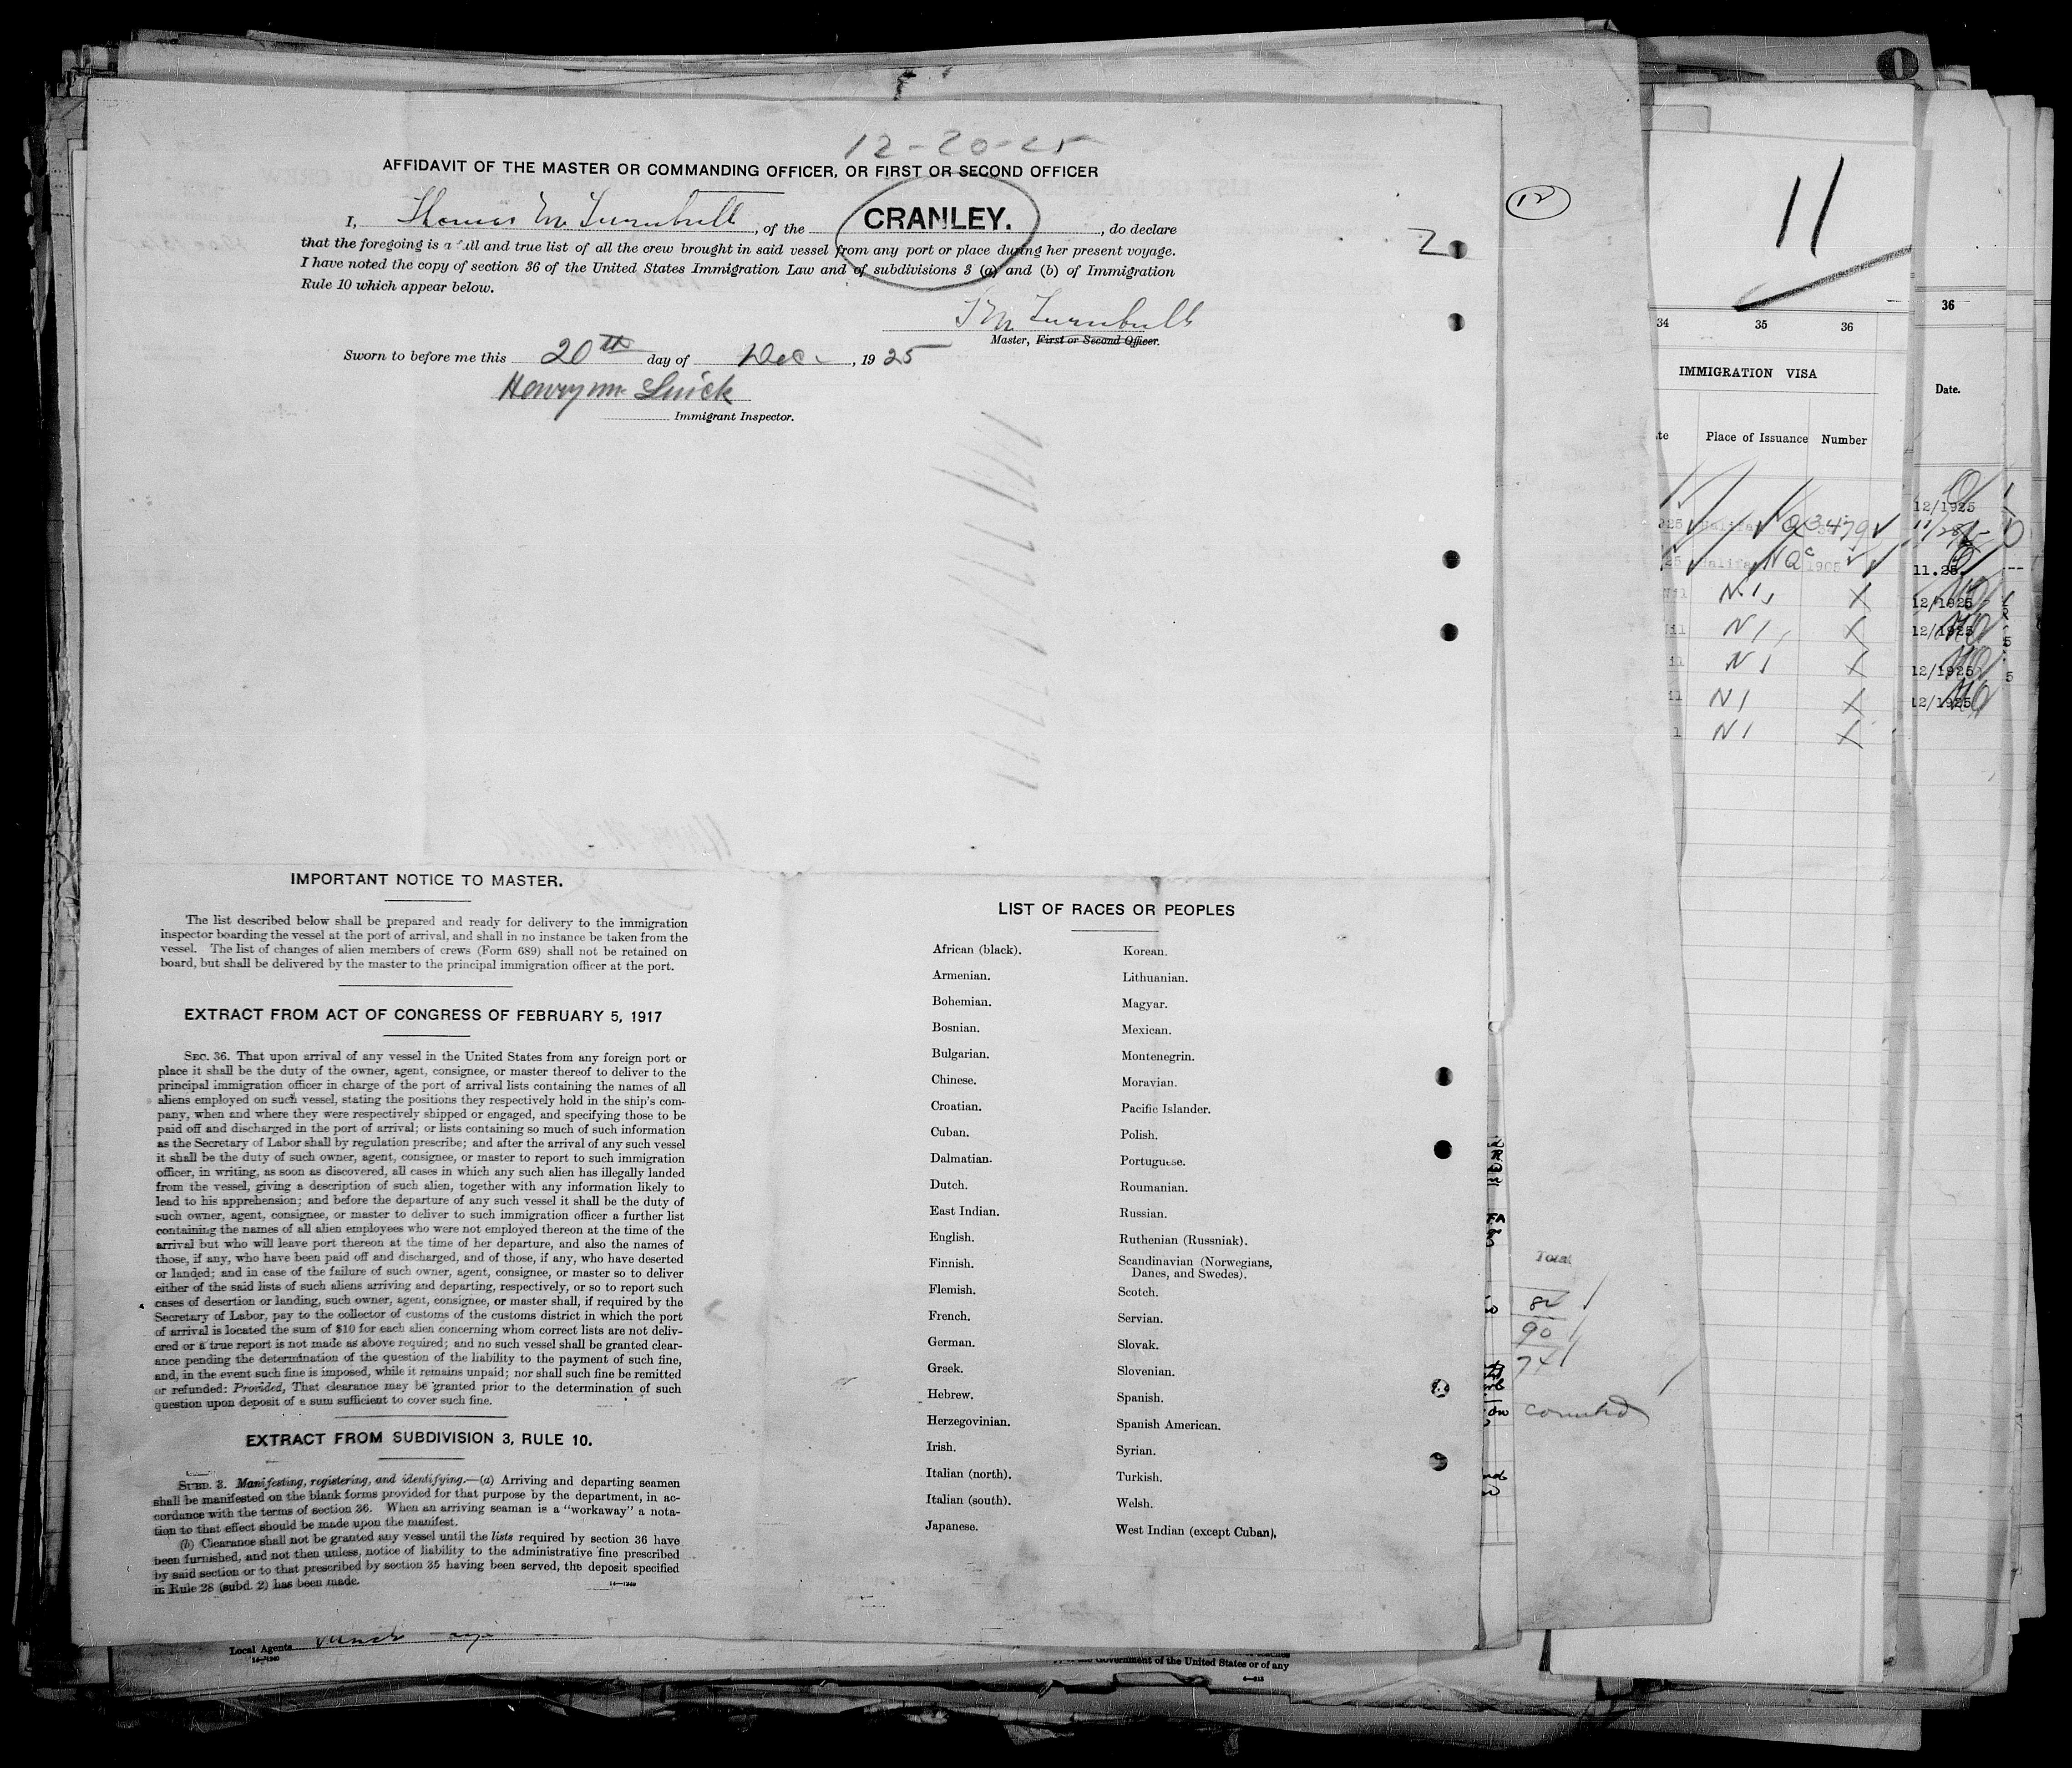 12-20-25
AFFIDAVIT OF THE MASTER OR COMMANDING OFFICER, OR FIRST OR SECOND OFFICER
I, Thomas M Turnbull, of the CRANLEY., do declare
that the foregoing is a full and true list of all the crew brought in said vessel from any port or place during her present voyage.
I have noted the copy of section 36 of the United States Immigration Law and of subdivisions 3 (a) and (b) of Immigration
Rule 10 which appear below.
T M Turnbull
Master, First or Second Officer.
Sworn to before me this 20th day of Dec., 1925
Henry M.
Immigrant Inspector.
12
2
IMPORTANT NOTICE TO MASTER.
The list described below shall be prepared and ready for delivery to the immigration
inspector boarding the vessel at the port of arrival, and shall in no instance be taken from the
vessel. The list of changes of alien members of crews (Form 689) shall not be retained on
board, but shall be delivered by the master to the principal immigration officer at the port.
EXTRACT FROM ACT OF CONGRESS OF FEBRUARY 5, 1917
SEC. 36. That upon arrival of any vessel in the United States from any foreign port or
place it shall be the duty of the owner, agent, consignee, or master thereof to deliver to the
principal immigration officer in charge of the port of arrival lists containing the names of all
aliens employed on such vessel, stating the positions they respectively hold in the ship's com-
pany, when and where they were respectively shipped or engaged, and specifying those to be
paid off and discharged in the port of arrival; or lists containing so much of such information
as the Secretary of Labor shall by regulation prescribe; and after the arrival of any such vessel
it shall be the duty of such owner, agent, consignee, or master to report to such immigration
officer, in writing, as soon as discovered, all cases in which any such alien has illegally landed
from the vessel, giving a description of such alien, together with any information likely to
lead to his apprehension; and before the departure of any such vessel it shall be the duty of
such owner, agent, consignee, or master to deliver to such immigration officer a further list
containing the names of all alien employees who were not employed thereon at the time of the
arrival but who will leave port thereon at the time of her departure, and also the names of
those, if any, who have been paid off and discharged, and of those, if any, who have deserted
or landed; and in case of the failure of such owner, agent, consignee, or master so to deliver
either of the said lists of such aliens arriving and departing, respectively, or so to report such
cases of desertion or landing, such owner, agent, consignee, or master shall, if required by the
Secretary of Labor, pay to the collector of customs of the customs district in which the port
of arrival is located the sum of $10 for each alien concerning whom correct lists are not deliv-
ered or a true report is not made as above required; and no such vessel shall be granted clear-
ance pending the determination of the question of the liability to the payment of such fine,
and, in the event such fine is imposed, while it remains unpaid; nor shall such fine be remitted
or refunded: Provided, That clearance may be granted prior to the determination of such
question upon deposit of a sum sufficient to cover such fine.
EXTRACT FROM SUBDIVISION 3, RULE 10.
SUBD. 3. Manifesting, registering, and identifying.—(a) Arriving and departing seamen
shall be manifested on the blank forms provided for that purpose by the department, in ac-
cordance with the terms of section 36. When an arriving seaman is a "workaway" a nota-
tion to that effect should be made upon the manifest.
(b) Clearance shall not be granted any vessel until the lists required by section 36 have
been furnished, and not then unless, notice of liability to the administrative fine prescribed
by said section or to that prescribed by section 35 having been served, the deposit specified
in Rule 28 (subd. 2) has been made.
LIST OF RACES OR PEOPLES
African (black).
Armenian.
Bohemian.
Bosnian.
Bulgarian.
Chinese.
Croatian.
Cuban.
Dalmatian.
Dutch.
East Indian.
English.
Finnish.
Flemish.
French.
German.
Greek.
Hebrew.
Herzegovinian.
Irish.
Italian (north).
Italian (south).
Japanese.
Korean.
Lithuanian.
Magyar.
Mexican.
Montenegrin.
Moravian.
Pacific Islander.
Polish.
Portuguese.
Roumanian.
Russian.
Ruthenian (Russniak).
Scandinavian (Norwegians,
Danes, and Swedes).
Scotch.
Servian.
Slovak.
Slovenian.
Spanish.
Spanish American.
Syrian.
Turkish.
Welsh.
West Indian (except Cuban),
Local Agents
Government of the United States or of any
Total
90
11
34 35 36
IMMIGRATION VISA
Place of Issuance Number
36
Date.
12/1925
11.25
12/1925
12/1925
12/1925
12/1925